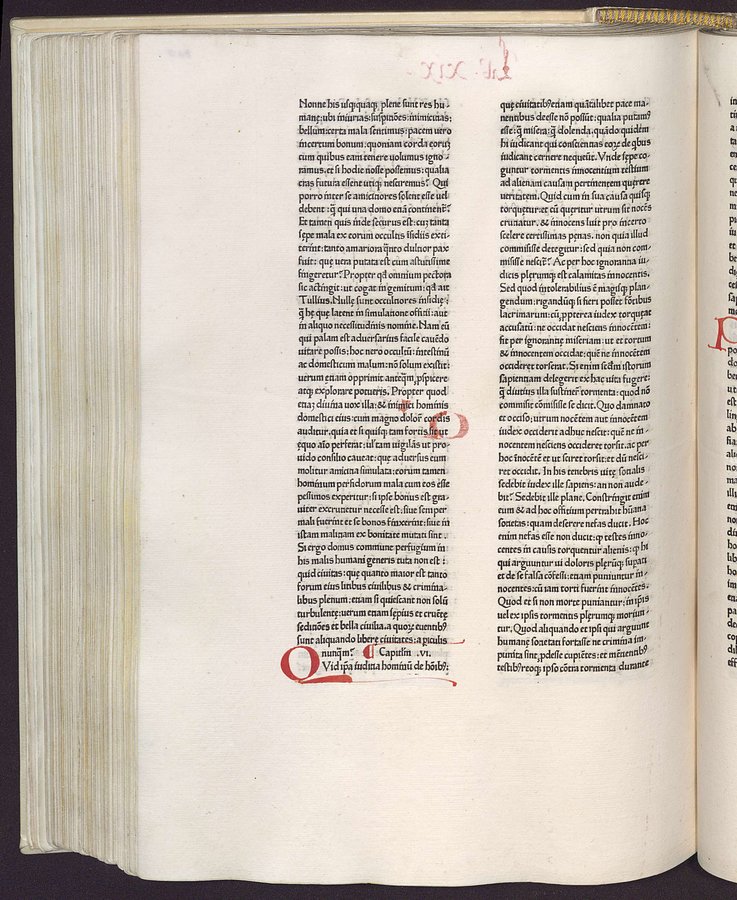 Nonne his usq;quaq; plene sunt res hu-
manę; ubi iniurias: suspitiões: inimicitias:
bellum: certa mala sentimus: pacem uero
incertum bonum: quoniam corda eorum
cum quibus eam tenere uolumus igno-
ramus. et si hodie nosse possemus: qualia
cras futura essent utiq; nesciremus? Qui
porro inter se amiciores solent esse uel
debent: q̃ qui una domo etiã continent?
Et tamen quis inde securus est: cũ tanta
sępe mala ex eorum occultis ĩsidiis exti-
terint: tanto amariora q̃nto dulcior pax
fuit: quę uera putata est cum astutissime
fingeretur? Propter qđ omnium pectora
sic actingit: ut cogat in gemitum: qđ ait
Tullius. Nullę sunt occultiores insidię:
q̃ hę quę latent in simulatione offitii: aut
in aliquo necessitudinis nomine. Nam eũ
qui palam est aduersarius facile cauẽdo
uitare possis: hoc uero occultũ: intestinũ
ac domesticum malum: nõ solum existit:
uerum etiam opprimit anteq̃m ꝓspicere
atq; explorare potueris. Propter quod
etiã diuina uox illa: & inimici hominis
domestici eius: cum magno dolore cordis
auditur. quia et si quisq; tam fortis sit ut
ęquo aĩo perferat: ul' tam uigilãs ut pro-
uido consilio caueat: quę aduersus eum
molitur amicitia simulata: eorum tamen
hominum perfidorum mala cum eos esse
pessimos experitur: si ipse bonus est gra-
uiter excrucietur necesse est: siue semper
mali fuerint et se bonos finxerint: siue in
istam malitiam ex bonitate mutati sint.
Si ergo domus commune perfugium in
his malis humani generis tuta non est:
quid ciuitas: quę quanto maior est tanto
forum eius litibus ciuilibus & crimina-
libus plenum: etiam si quiescant non solũ
turbulentę: uerum etiam sępius et cruẽtę
seditiões et bella ciuilia. a quoꝝ euentibꝰ
sunt aliquando liberę ciuitates: a periculis
nunq̃m? Capitulũ .vi.
Quid ip̃a iuditia hominũ de hõibꝰ:
quę ciuitatibꝰ etiam quãtalibet pace ma-
nentibus deesse nõ possũt: qualia putamꝰ
esse: q̃ misera: q̃ dolenda. quãdoquidẽm
hi iudicant qui conscientias eoꝝ de q̃bus
iudicant cernere nequeũt. Vnde sępe co-
guntur tormentis innocentium testium
ad alienam causam pertinentem quęrere
ueritatem. Quid cum in sua causa quisq;
torquetur. et cũ quęritur utrum sit nocẽs
cruciatur. & innocens luit pro incerto
scelere certissimas pęnas. non quia illud
commisisse detegitur: sed quia non com-
misisse nescit? Ac per hoc ignorantia iu-
dicis plęrumq; est calamitas innocentis.
Sed quod intolerabilius ẽ magisq; plan-
gendum: rigandũq; si fieri posset fõtibus
lacrimarum: cũ ꝓpterea iudex torqueat
accusatũ: ne occidat nesciens innocẽtem:
fit per ignorantię miseriam: ut et tortum
& innocentem occidat: quẽ ne innocẽtem
occideret torserat. Si enim secdm̃ istorum
sapientiam delegeret ex hac uita fugere:
q̃ diutius illa sustinere tormenta: quod nõ
commisit cõmisisse se dicit. Quo damnato
et occiso: utrum nocẽtem aut innocẽtem
iudex occiderit adhuc nescit: quẽ ne in-
nocentem nesciens occideret torsit. ac per
hoc ĩnocẽtẽ et ut sciret torsit: et dũ nesci-
ret occidit. In his tenebris uitę sotialis
sedebit iudex ille sapiens: an non aude-
bit? Sedebit ille plane. Constringit enim
eum & ad hoc offitium pertrahit hũana
societas: quam deserere nefas ducit. Hoc
enim nefas esse non ducit: q̃ testes inno-
centes in causis torquentur alienis: q̃ hi
qui arguuntur ui doloris plęrũq; supati
et de se falsa cõfessi: etiam puniuntur in-
nocentes: cũ iam torti fuerint innocẽtes.
Quod et si non morte puniantur: in ip̃is
uel ex ipsis tormentis plęrumq; moriun-
tur. Quod aliquando et ipsi qui arguunt
humanę societati fortasse ne crimina im-
punita sint ꝓdesse cupiẽtes: et mẽtientibꝰ
testibꝰ reoq; ipso cõtra tormenta durante